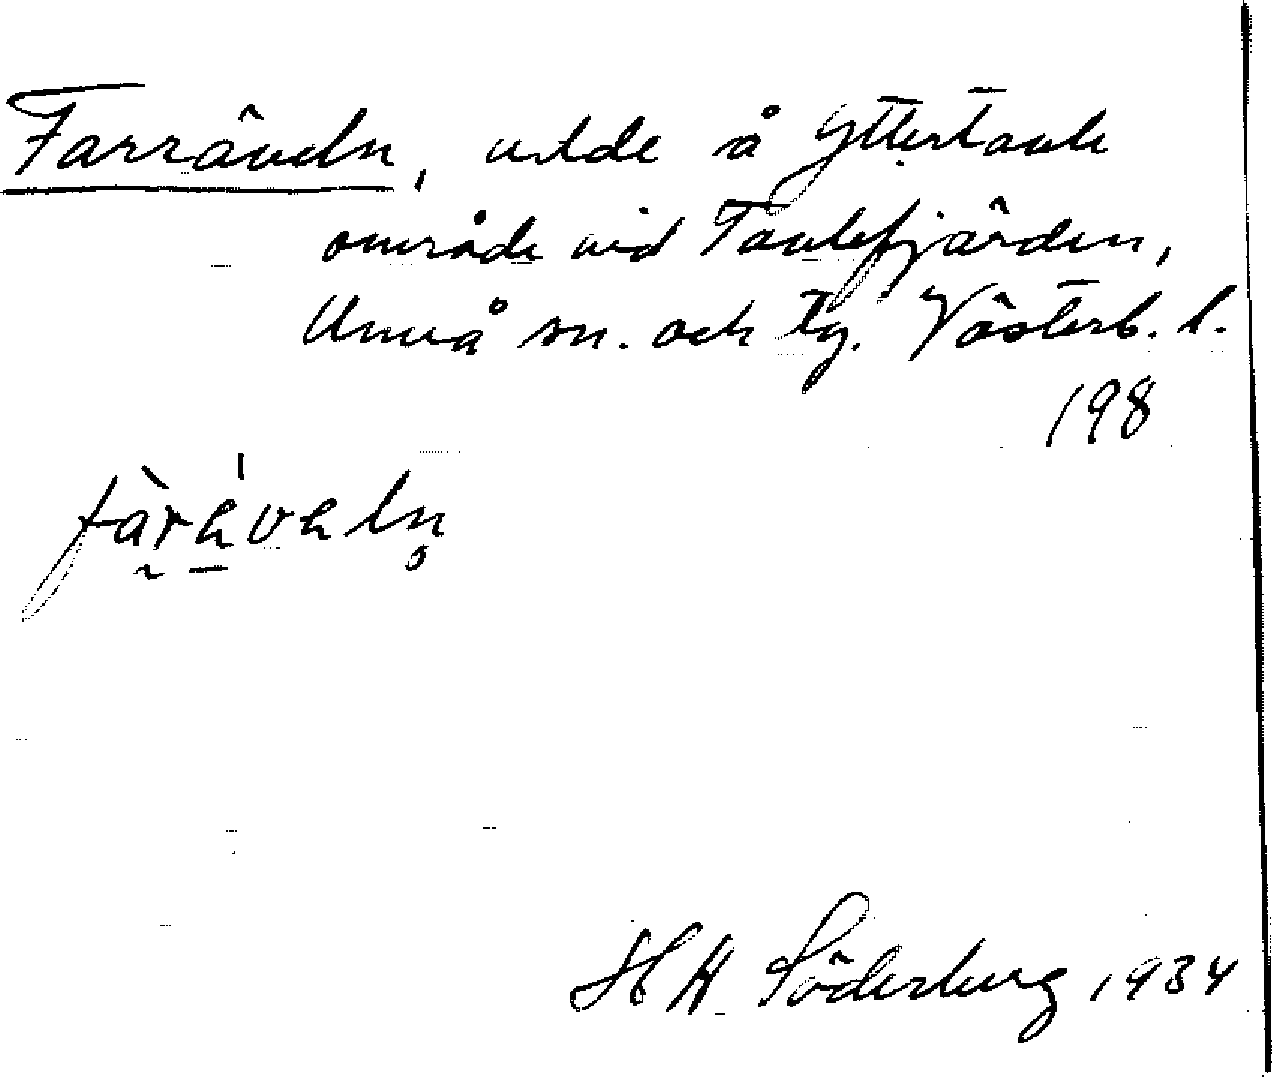 Farräveln, udde å Yttertavle
område vid Tavlefjärden,
Umeå sn. och tg. Västerb. l.
198
H H Söderberg 1934